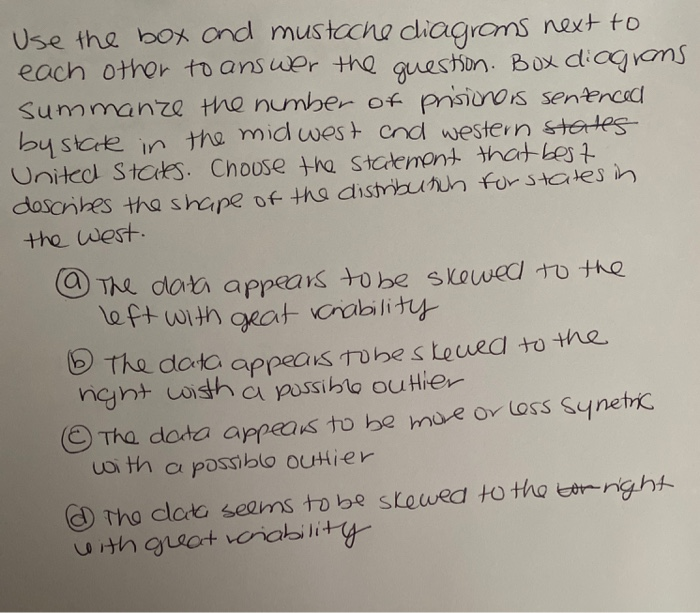 Use the box and mustache diagrams next to
each other to answer the question. Box diagrams
summarize the number of prisioners sentenced
by state in the midwest and western states
United States. Choose the statement that best
describes the shape of the distribution for states in
the west.
(a) The data appears to be skewed to the
left with geat variability
(b) The data appears to be skewed to the
right with a possible outlier
(c) The data appears to be more or less synetric
with a possible outlier
(d) The data seems to be skewed to the right
with great variability